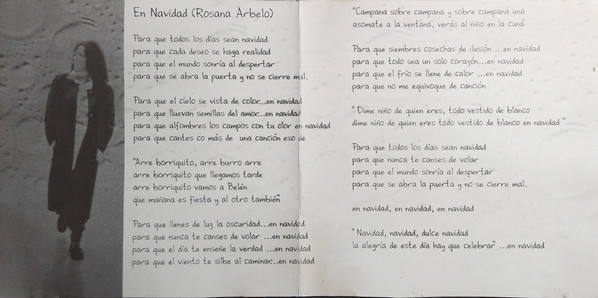 En Navidad (Rosana Arbelo)
Para que todos los días sean navidad
para que cada deseo se haga realidad
para que el mundo sonría al despertar
para que se abra la puerta y no se cierre mal.
Para que el cielo se vista de color...en navidad
para que lluevan semillas del amor...en navidad
para que alfombres los campos con tu olor en navidad
para que cantes co más de una canción eso de
"Arre borriquito, arre burro arre
arre borriquito que llegamos tarde
arre borriquito vamos a Belén
que mañana es fiesta y al otro también"
Para que llenes de luz la oscuridad...en navidad
para que nunca te canses de volar ...en navidad
para que el día te enseñe la verdad ...en navidad
para que el viento te silbe al caminar...en navidad
"Campana sobre campana y sobre campana una
asomate a la ventana, verás al niño en la cuna"
Para que siembres cosechas de ilusión ...en navidad
para que todo sea un solo corazón...en navidad
para que el frío se llene de calor ...en navidad
para que no me equivoque de canción
"Dime niño de quien eres, todo vestido de blanco
dime niño de quien eres todo vestido de blanco en navidad"
Para que todos los días sean navidad
para que nunca te canses de volar
para que el mundo sonría al despertar
para que se abra la puerta y no se cierre mal.
en navidad, en navidad, en navidad
"Navidad, navidad, dulce navidad
la alegría de este día hay que celebrar" ...en navidad